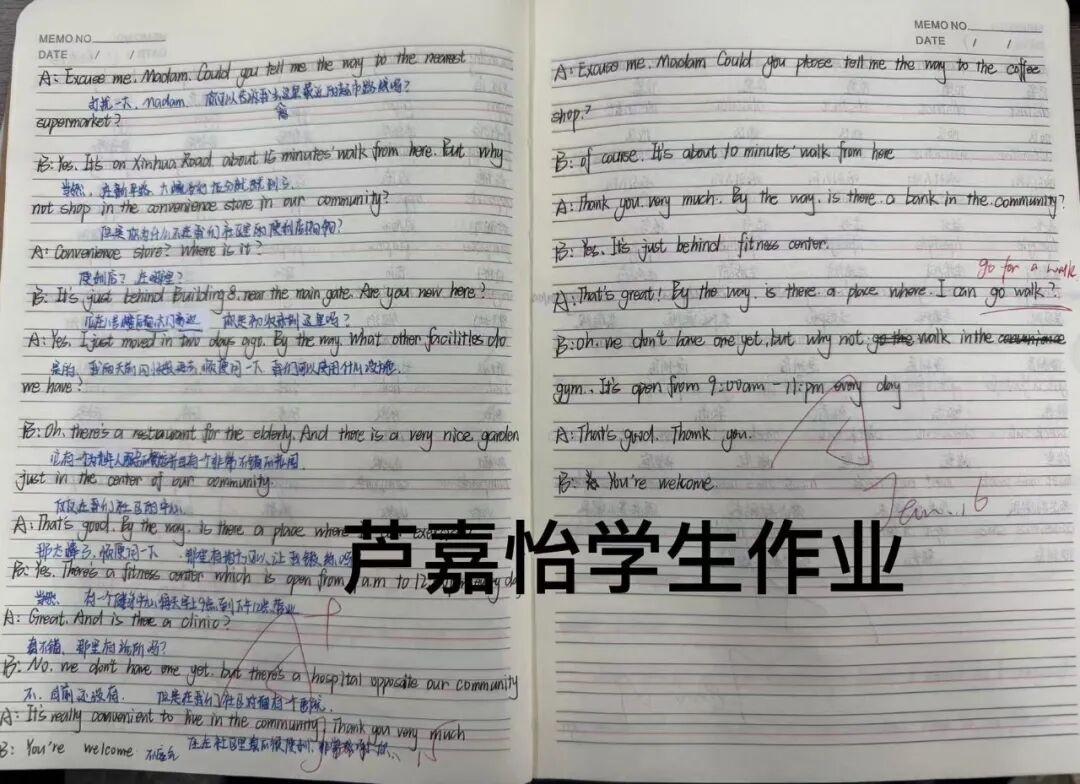 MEMO NO.
DATE / /
A: Excuse me. Madam. Could you tell me the way to the nearest
打扰一下, madam. 你可以告诉我去这里最近的超市路线吗?
supermarket?
B: Yes. It's on Xinhua Road about 15 minutes' walk from here. But why
当然, 在新华路, 大概
not shop in the convenience store in our community?
但是你为什么不在我们社区里的便利店购物?
A: Convenience store? Where is it?
便利店? 在哪里?
B: It's just behind Building 8. near the main gate. Are you new here?
你是初次来到这里吗?
A: Yes. I just moved in two days ago. By the way. What other facilities do
是的, 我两天前刚
we have?
B: Oh, there's a restaurant for the elderly. And there is a very nice garden
just in the center of our community.
仅仅在我们社区的中心
A: That's good. By the way. is there a place where
那太棒了, 顺便问一下
B: Yes. There's a fitness center which is open from a.m to 12
当然. 有一个健身中心, 每天早上9点到下午12点营业
A: Great. And is there a clinic?
真不错, 那里有诊所吗?
B: No. we don't have one yet. but there's a hospital opposite our community
不, 目前还没有. 但是在我们社区对面有一个医院
A: It's really convenient to live in the community, Thank you very much
住在社区里真的很便利, 非常感谢你.
B: You're welcome 不客气
MEMO NO.
DATE / /
A: Excuse me. Madam Could you please tell me the way to the coffee
shop.?
B: of course. It's about 10 minutes' walk from here
A: Thank you very much. By the way. is there a bank in the community?
B: Yes. It's just behind fitness center.
go for a walk
A: That's great! By the way. is there a place where I can go walk?
B: Oh. we don't have one yet, but why not go the walk in the convenience
gym.. It's open from 9:00am - 11:pm every day
A: That's good. Thank you.
B: You're welcome.
芦嘉怡学生作业